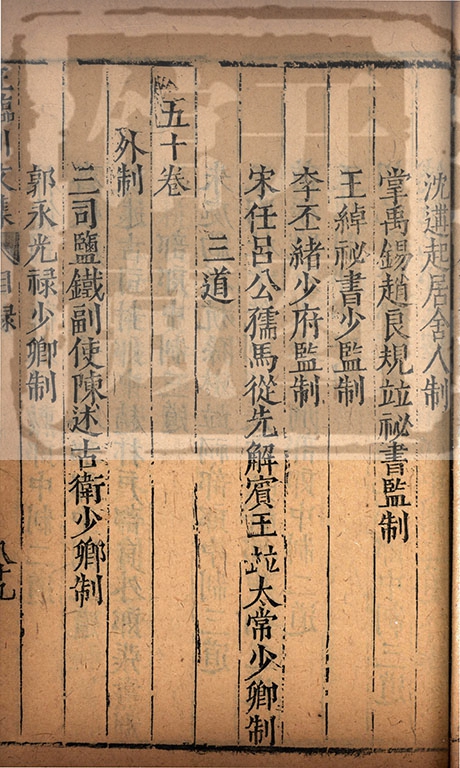 沈遘起居舍人制
掌禹錫趙良規竝祕書監制
王綽祕書少監制
李丕緒少府監制
宋任呂公孺馬從先解賓王竝太常少卿制
三道
五十卷
外制
三司鹽鐵副使陳述古衛少卿制
郭永光祿少卿制
王臨川文集 目録
八十九